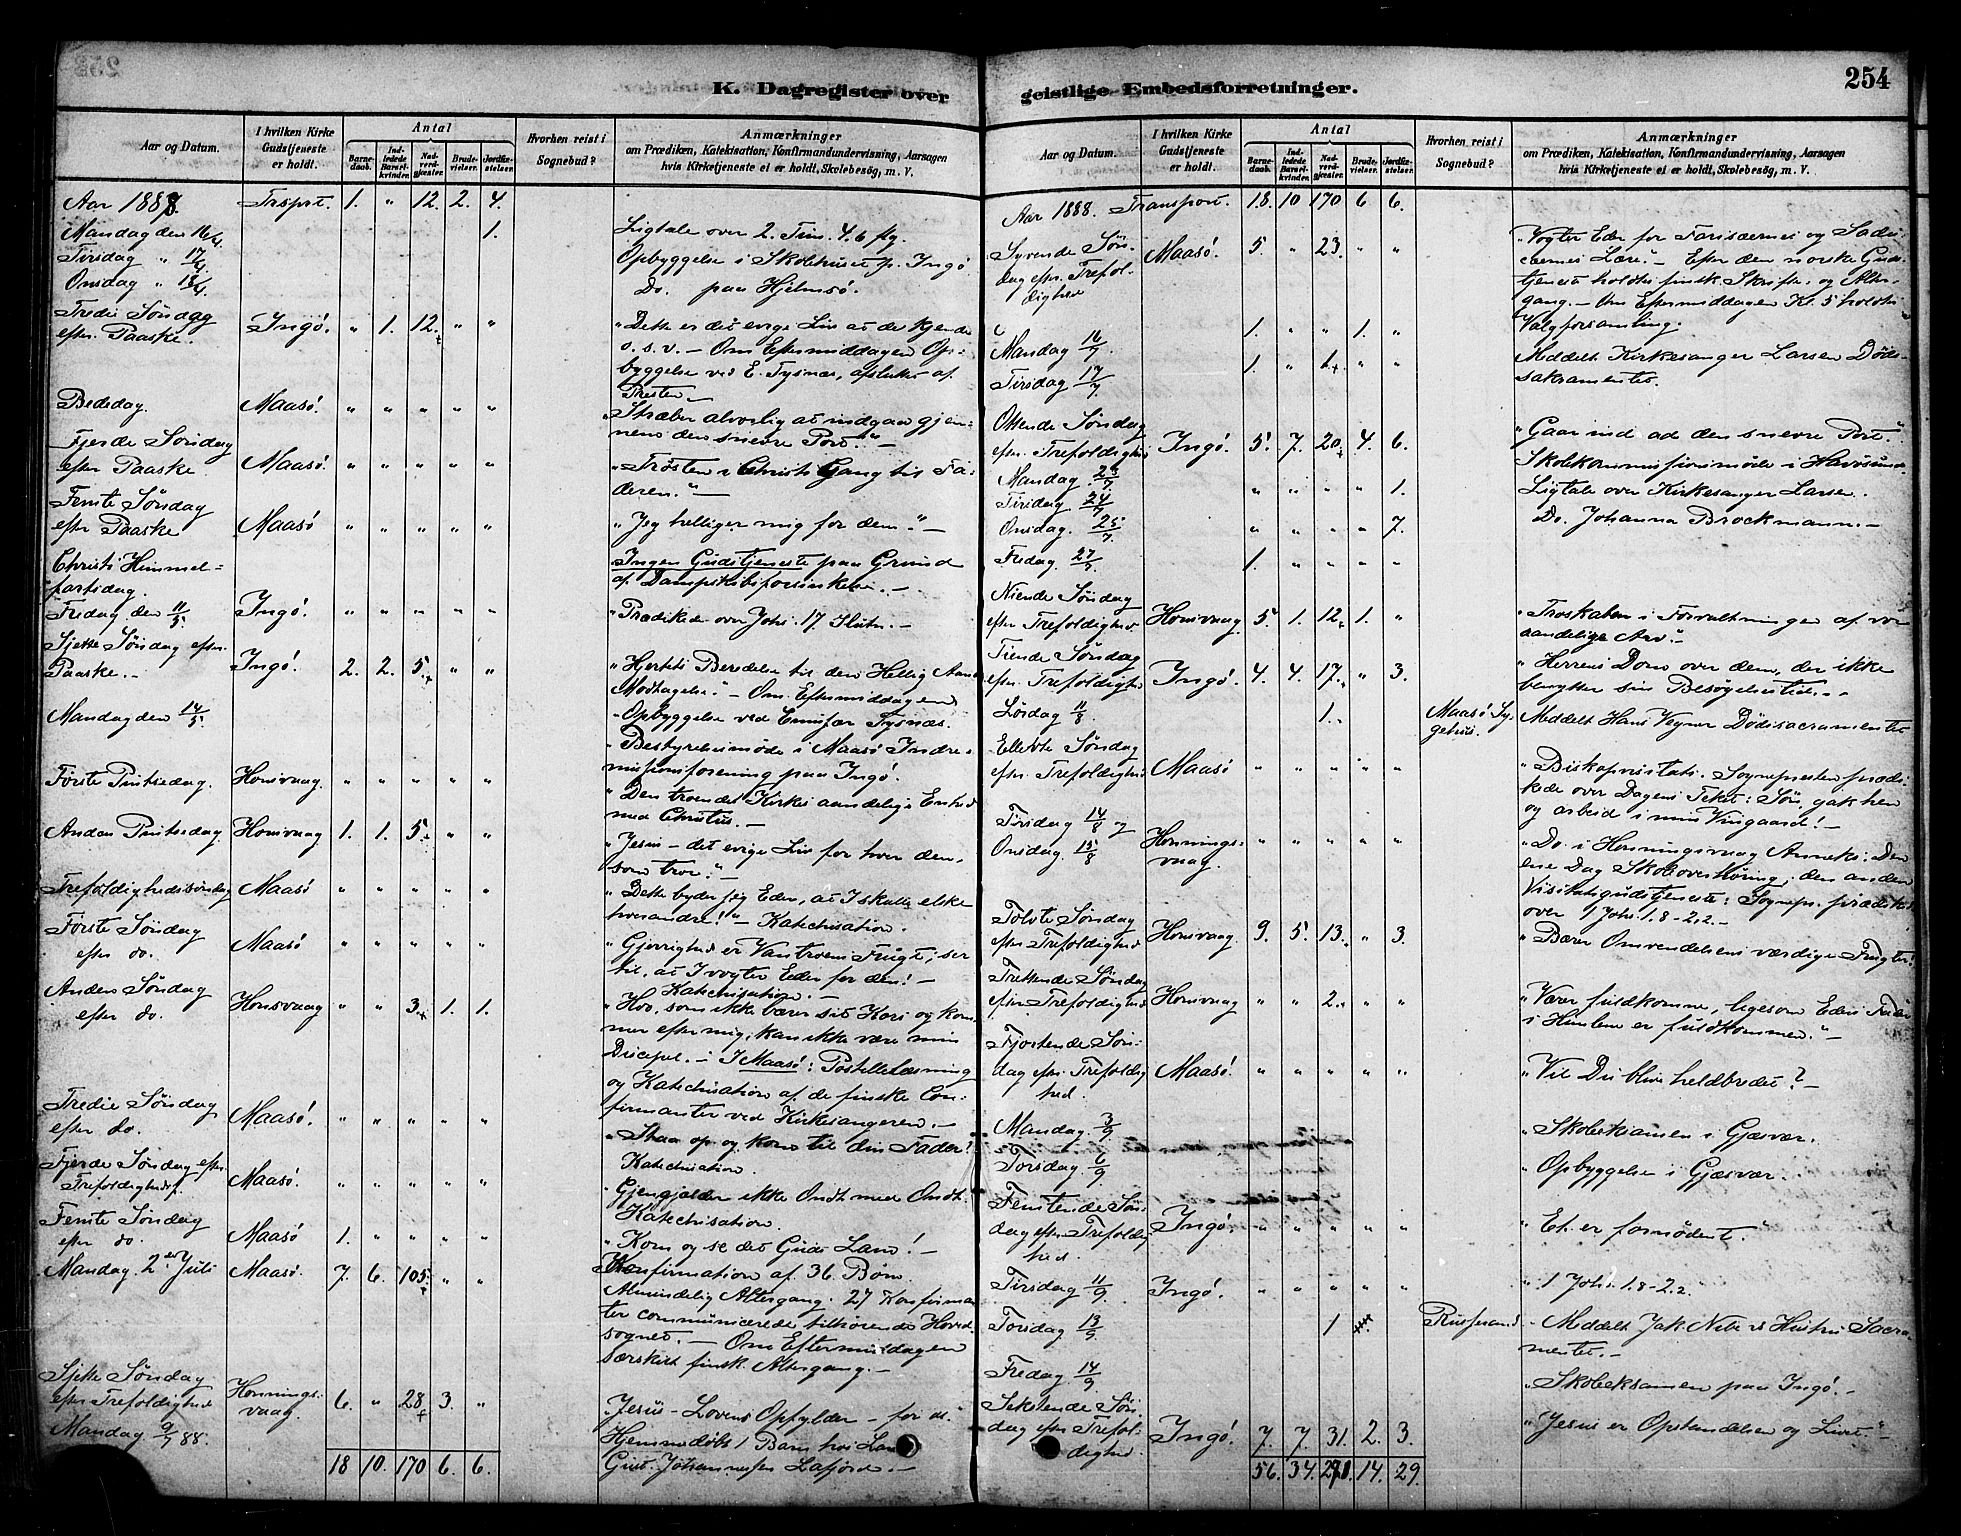 K. Dagregister over geistlige Embedsforretninger.
254
Aar og Datum.
I hvilken Kirke Gudstjeneste er holdt.
Antal
Barnedaab.
Indledede Barselkvinder.
Nadverdgjester.
Brudevielser.
Jordfæstelser.
Hvorhen reist i Sognebud?
Anmærkninger
om Prædiken, Katekisation, Konfirmandundervisning, Aarsagen
hvis Kirketjeneste ei er holdt, Skolebesøg, m. V.
Aar 1888. Trsprt. 1. " 12. 2. 4.
Mandag den 16/4 1. Ligtale over 2. Tim. 4.6 flg.
Tirsdag " 17/4 Opbyggelse i Skolehuset p. Ingø.
Onsdag " 18/4. Do. paa Hjelmsø.
Tredie Søndag
efter Paaske. Ingø. " 1. 12. " " "Dette er det evige Liv at de kjende
o. s. v. – Om Eftermiddagen Op-
byggelse ved E. Tysnæs, afsluttet af
Presten.
Bededag. Maasø. " " " " " "Stræber alvorlig at indgaa gjen-
nem den snevre Port." –
Fjerde Søndag
efter Paaske Maasø. " " " " " "Trøsten i Christi Gang til Fa-
deren." –
Femte Søndag
efter Paaske Maasø " " " " " "Jeg helliger mig for dem." –
Christi Himmel-
fartsdag. Ingen Gudstjeneste paa Grund
af Dampskibsforsinkelse. –
Fredag den 11/5 Ingø. " " " " " "Prædiken over Joh. 17 Slutn. –
Sjette Søndag efter
Paaske. – Ingø. 2. 2. 5. " " "Hjertets Beredelse til den Hellig Aands
Modtagelse." – Om Eftermiddagen
Opbyggelse ved Emissær Tysnæs.
Mandag den 14/5 "Bestyrelsesmøde i Maasø Indre-
missionsforening paa Ingø.
Første Pintsedag. Honsvaag. " " " " " "Den troende Kirkes aandelige Enhed
med Christus. –
Anden Pintsedag Honsvaag 1. 1. 5. " " "Jesus – det evige Liv for hver den,
som tror." –
Trefoldighedssøndag Maasø " " " " " "Dette byder jeg Eder, at I skulle elske
hverandre!" – Katechisation.
Første Søndag
efter do. Maasø " " " " " "Gjerrighed er Vantroens Frugt; ser
til, at I vogter Eder for den! –
Katechisation. –
Anden Søndag
efter do. Honsvaag " " 3. 1. 1. "Hvo, som ikke bærer sit Kors og kom-
mer efter mig, kan ikke være min
Discipel. – I Maasø: Postillelæsning
og Katechisation af de finske Con-
firmanter ved Kirkesangeren. –
Tredie Søndag
efter do. Maasø. " " " " " "Staa op og kom til din Fader!
Katechisation.
Fjerde Søndag efter
Trefoldighedsf. Maasø. " " " " " Gjengjælder ikke Ondt med Ondt.
Katechisation.
Femte Søndag
efter do. Maasø 1. " " " " "Kom og se det Guds Lam! –
Mandag 2en Juli Maasø. 7. 6. 105. " " Konfirmation af 36 Børn.
Almindelig Altergang. 27 Konfirman-
ter communicerede tilhørende Hoved-
sognet. – Om Eftermiddagen
særskilt finsk Altergang. –
Sjette Søndag
efter Trefoldighed Honnings-
vaag. 6. " 28 3. " "Jesus – Lovens Opfylder – for os."
Mandag 9/7 88. Hjemmedøbt 1 Barn hos Lars
Gust. Johannesen Lafjord. –
18 10. 170 6. 6.
Aar 1888. Transport. 18. 10 170 6 6.
Syvende Søn-
dag eftr. Trefol-
dighed Maasø. 5. " 23. " " "Vogter Eder for Farisæernes og Sadu-
cæernes Lære." – Efter den norske Guds-
tjeneste holdtes finsk Skrifte- og Alter-
gang. – Om Eftermiddagen Kl. 5 holdtes
Valgforsamling.
Mandag 16/7 1. " " 1. "
Tirsdag 17/7 1. " 1. " " Meddelt Kirkesanger Larsen Døds-
sakramentet.
Ottende Søndag
eftr. Trefoldighed Ingø. 5. 7. 20. 4. 6. "Gaar ind ad den snevre Port."
Mandag 23/7 Skolekommissionsmøde i Havøsund.
Tirsdag 24/7 " " " " 1. Ligtale over Kirkesanger Larsen.
Onsdag. 25/7. " " " " 7. Do. Johanna Brockmann. –
Fredag 27/7. 1. " " " "
Niende Søndag
eftr Trefoldighed Honsvaag 5. 1. 12. 1. " "Troskaben i Forvaltningen af vor
aandelige Arv."
Tiende Søndag
eftr. Trefoldighed Ingø. 4. 4. 17. " 3. "Herrens Dom over dem, der ikke
benytter sin Besøgelsestid. –
Lørdag 11/8. 1. Maasø Sy-
gehus. Meddelt Hans Vegner Dødssacramentet
Ellevte Søndag
eftr. Trefoldighed Maasø " " " " " "Bispevisitats. Sognepresten prædi-
kede over Dagens Tekst: Søn, gak hen
og arbeid i min Viingaard! –
Tirsdag 14/8 og
Onsdag 15/8 Honnings-
vaag. " " " " " "Do. i Honningsvaag Anneks: Den
ene Dag Skoleoverhøring, den anden
Visitatsgudstjeneste: Sognepr. prædiked
over 1 Joh. 1.8–2.2. –
Tolvte Søndag
eftr. Trefoldighed Honsvaag. 9. 5. 13. " 3. "Bærer Omvendelsens værdige Frugter!
Trettende Søndag
eftr. Trefoldighed Honsvaag " " 2. " " "Værer fuldkomne, ligesom Eders Fader
i Himlene er fuldkommen." –
Fjortende Søn-
dag eftr. Trefoldig-
hed. Maasø. " " " " " "Vil Du blive helbredet? –
Mandag 3/9 "Skoleeksamen i Gjæsvær.
Torsdag 6/9 "Opbyggelse i Gjæsvær. –
Femtende Søn-
dag eftr Trefoldig-
hed. Ingø. " " " " " "Et er fornødent." –
Tirsdag 11/9 Ingø. " " " " " "1 Joh. 1.8–2.2.
Torsdag 13/9 1 Meddelt Jak. Hustru Sacra-
mentet. –
Fredag 14/9 "Skoleeksamen paa Ingø. –
Sekstende Søn-
dag eftr Trefol-
dighed. Ingø. 7. 7. 31. 2. 3. "Jesus er Opstandelsen og Livet" –
56. 34. 291. 14. 29.